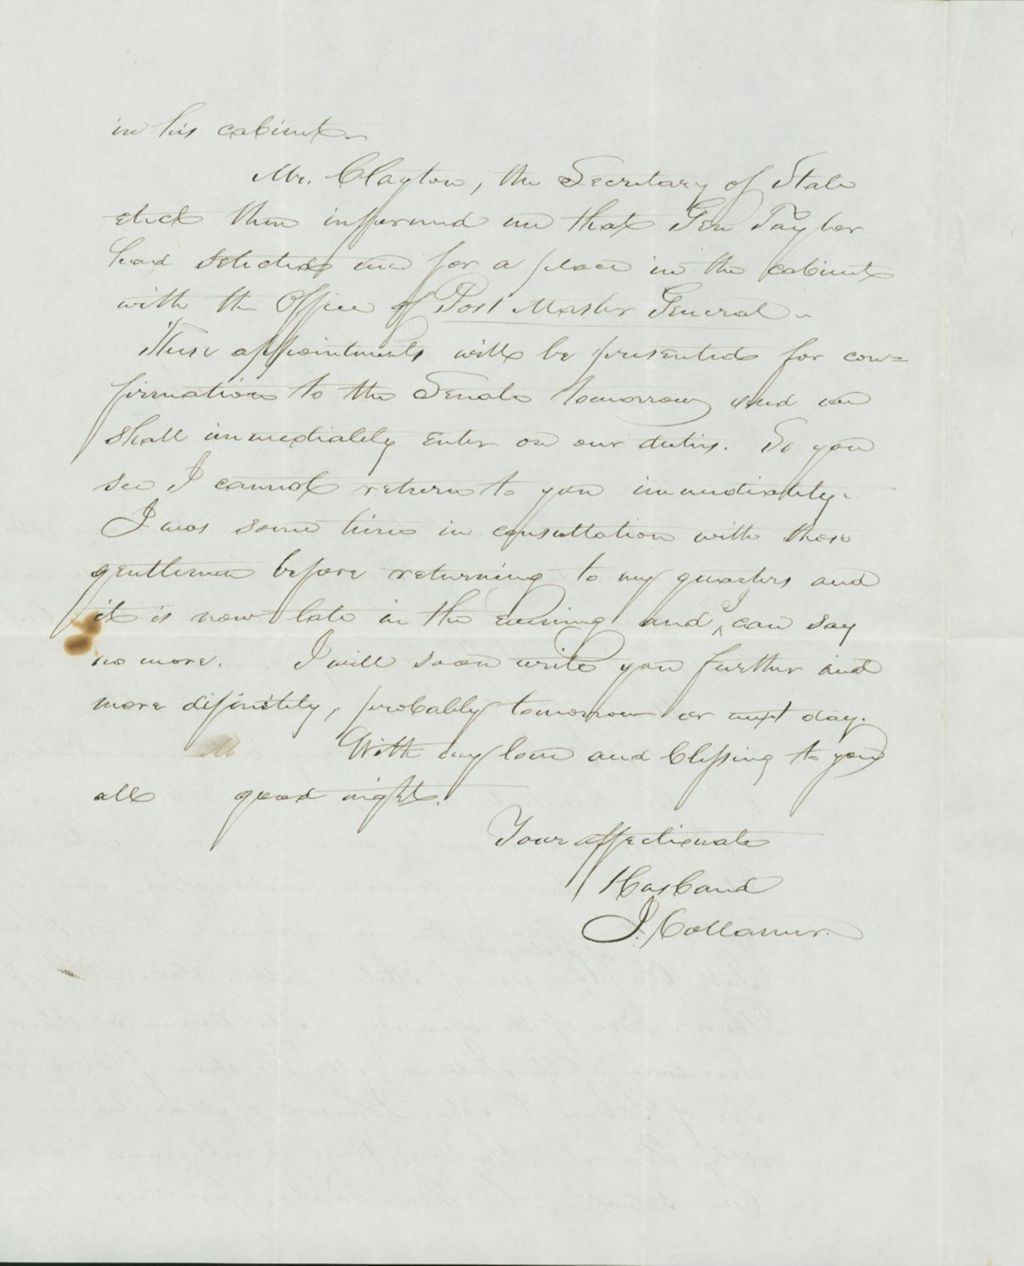 in his cabinet.
Mr. Clayton, the Secretary of State
elect then informed me that Gen Taylor
had selected me for a place in the cabinet
with the Office of Post Master General.
These appointments will be presented for con=
firmation to the Senate tomorrow and we
shall immediately enter on our duties. So you
see I cannot return to you immediately.
I was some time in consultation with these
gentlemen before returning to my quarters and
it is now late in the evening and I can say
no more. I will soon write you further and
more difinitely, probably tomorrow or next day.
With my love and blessing to you
all good night.
Your affectionate
Husband
J. Collamer.